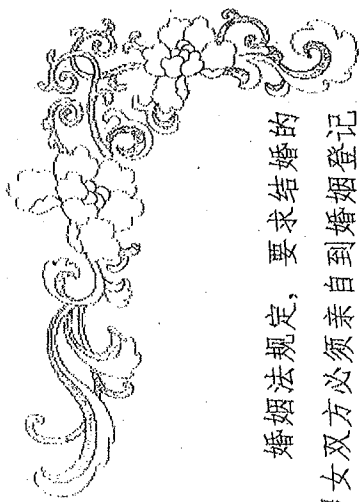 婚姻法规定，要求结婚的
女双方必须亲自到婚姻登记